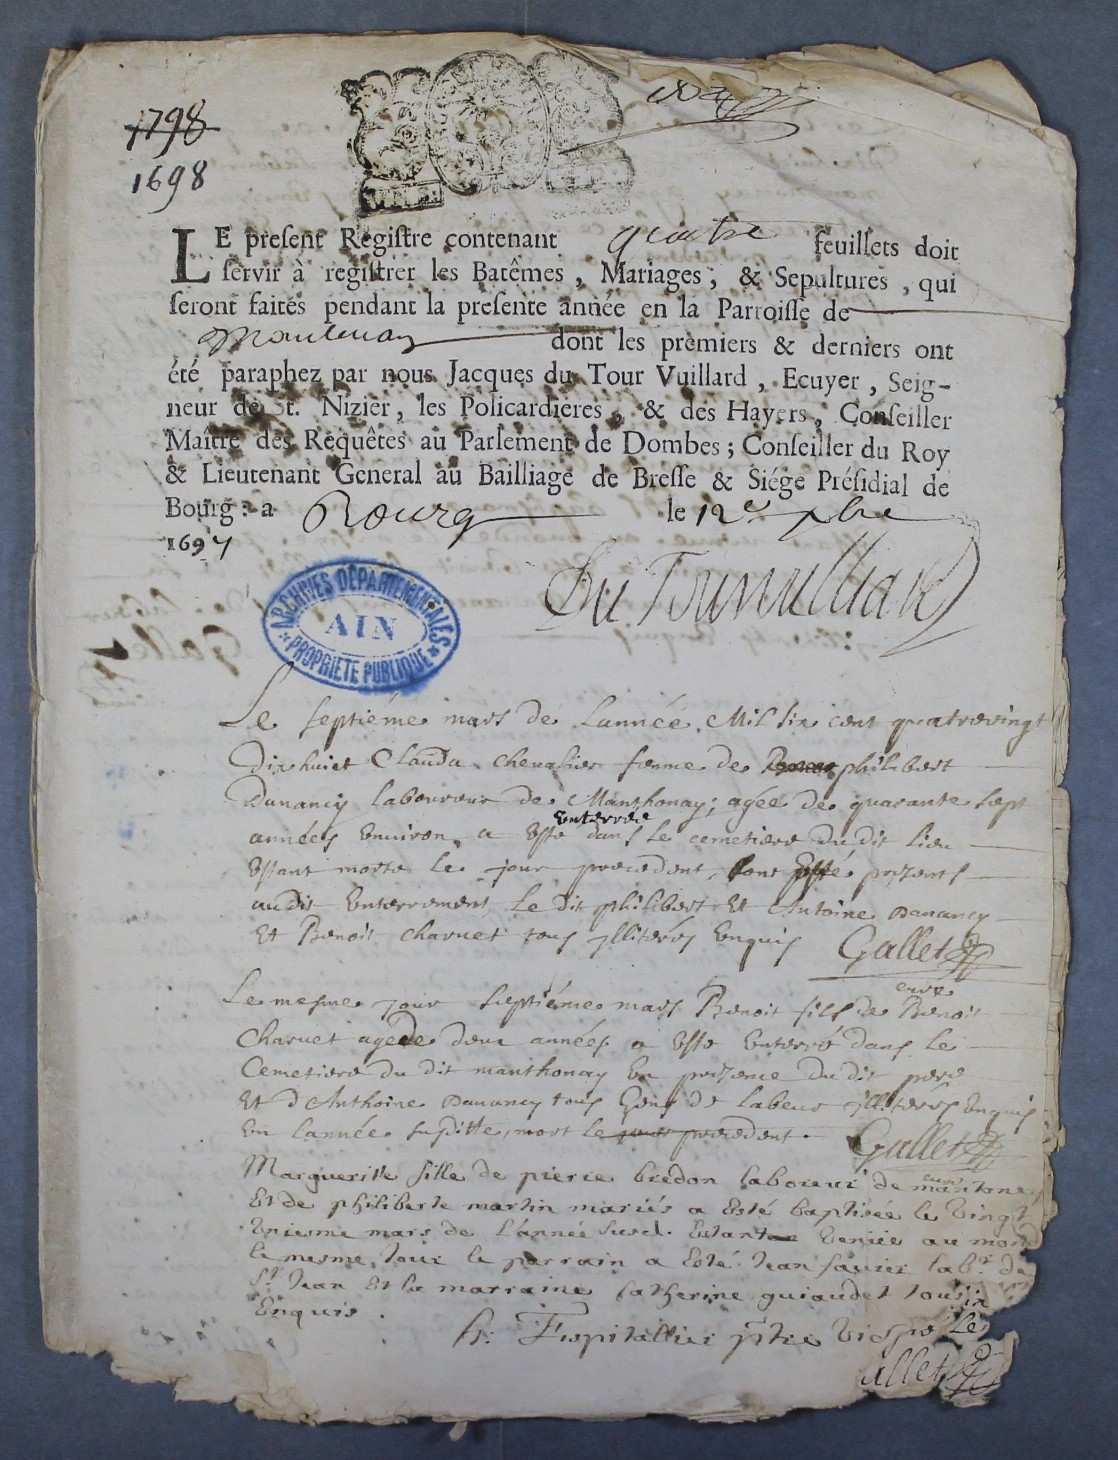 1798
1698
LE present Registre contenant quatre feuillets doit
servir à registrer les Batêmes, Mariages, & Sepultures, qui
seront faites pendant la presente année en la Parroisse de
Mantenay dont les premiers & derniers ont
été paraphez par nous Jacques du Tour Vuillard, Ecuyer, Seig-
neur de St. Nizier, les Policardieres, & des Hayers, Conseiller
Maître des Requêtes au Parlement de Dombes; Conseiller du Roy
& Lieutenant General au Bailliage de Bresse & Siége Présidial de
Bourg: a Bourg le 12e xbre
1697
Du Tourvuillard
ARCHIVES DÉPARTEMENTALES
AIN
PROPRIÉTÉ PUBLIQUE
Le septiéme mars de Lannée Mil six cent quatrevingt
Dix huict Clauda chevalier femme de philibert
Dananciy laboureur de Manthonay; agée de quarante sept
années environ a esté enterrée dans le cemetiere du dit lieu
estant morte le jour precedent, sont esté presents
audit enterrement le dit philibert Et Antoine Danancy
Et Benoit charuet tous jlliterés enquis Gallet
curé
Le mesme jour septiéme mars Benoit fils de Benoit
Charuet agé de deux années a esté enterré dans le
Cemetiere du dit manthonay en presence du dit pere
Et d Anthoine Danancy tous gens de labeur jlliterés enquis
en lannée susditte, mort le jour precedent. Gallet
curé
Marguerite fille de pierre bredon laboreur de mantone
Et de philiberte martin mariés a esté baptisée le vingt
unieme mars de l'année susd. Estant venüe au mon
le mesme Jour le parrain a esté Jean favier labr. de
St Jean Et la marraine Catherine guiaudet tous
Enquis.